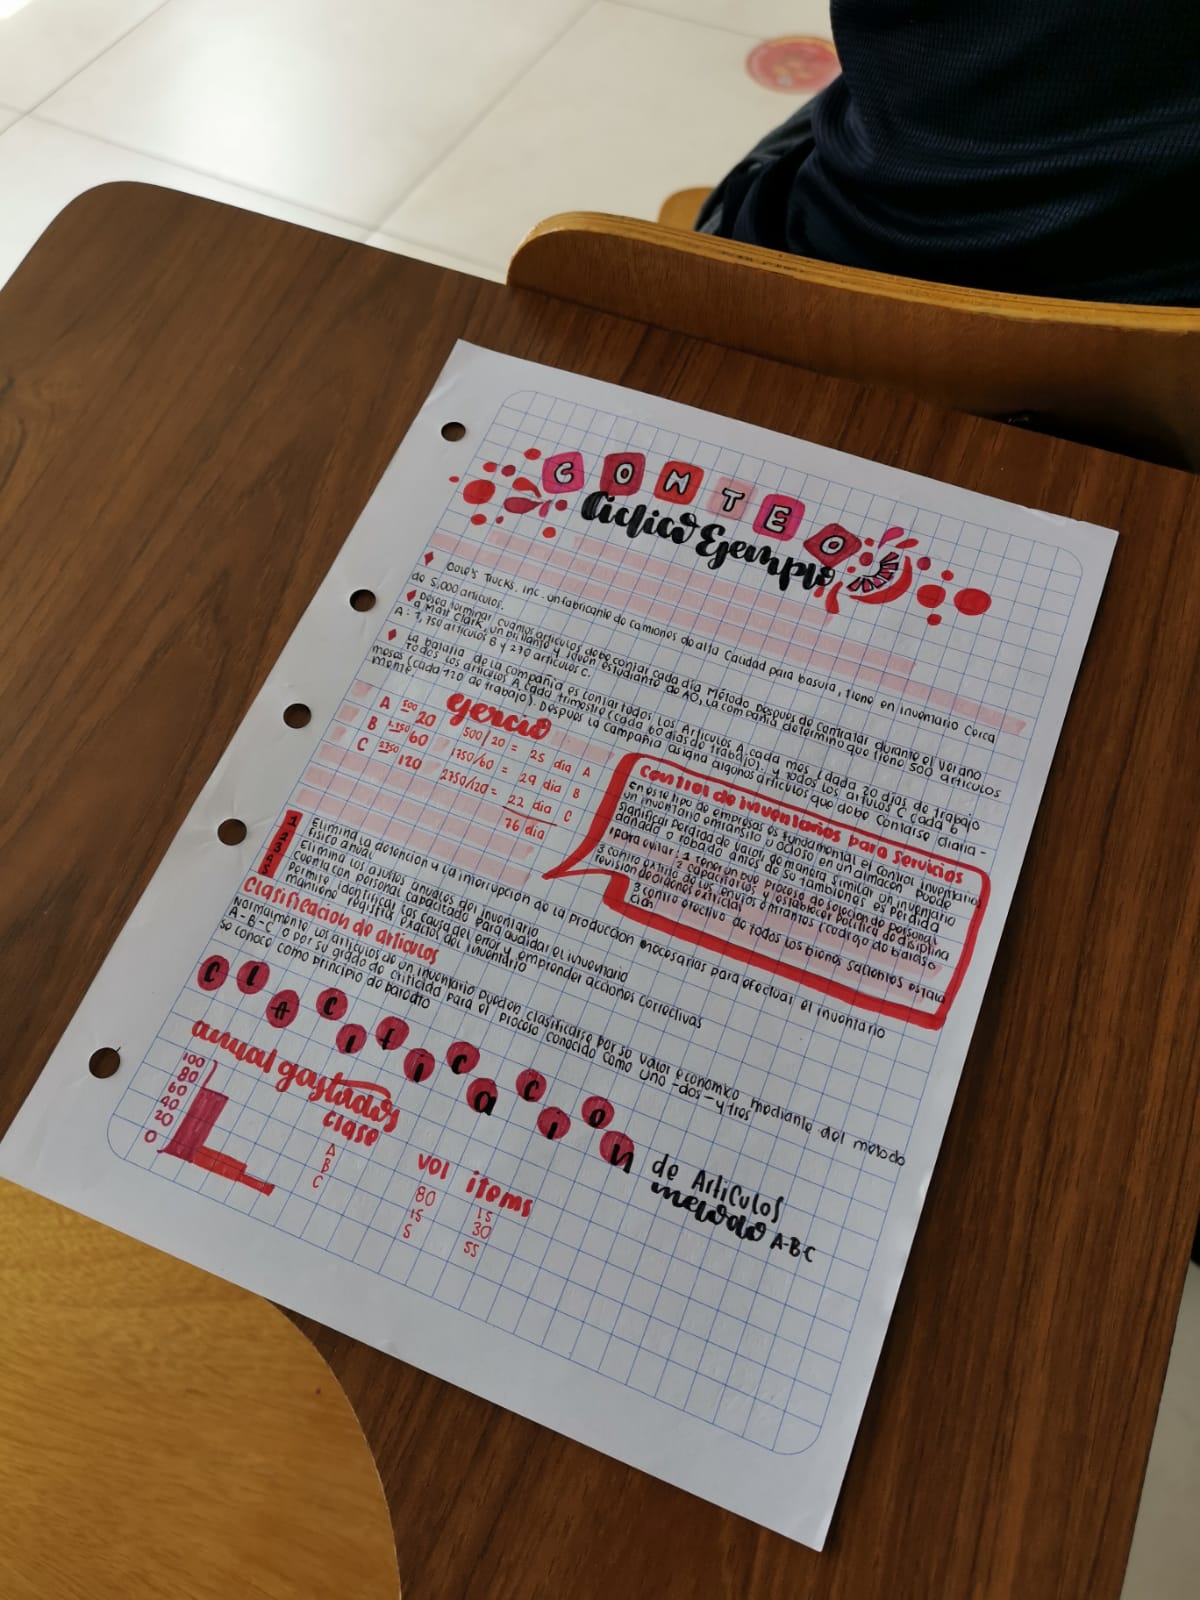 CONTEO
Ciclico Ejemplo
Cole's Trucks, inc. un fabricante de camiones de alta Calidad para basura, tiene en inventario Cerca
de 5,000 articulos.
Desea terminar cuantos articulos debe contar cada día Método Despues de Contratar durante el verano
a Matt Clark, un brillante y joven estudiante de AO, la compañia determino que tiene 500 articulos
A: 1,750 articulos B y 270 articulos C.
La de la compañia es contar todos los Articulos A cada mes (cada 20 días de trabajo
Todos los articulos A cada trimestre (cada 60 días de trabajo). y todos los artículos C (cada 6
meses (cada 120 de trabajo). Despues la Campañia asigna algunos articulos que debe Contarse diaria-
mente.
ejercio
A 500 20 500/20 = 25 dia A
B 1,750 60 1750/60 = 29 dia B
C 2750 120 2750/120 = 22 dia C
76 dia
Control de inventarios para Servicios
En este tipo de empresas es fundamental el control inventario
un inventario entransito u ocioso en un almacen puede
significar perdida de valor, de manera similar un inventario
dañado o robado antes de su tambienes es perdida
para evitar: 1 tener un bue proceso de selecion de personal
2 capacitarlos y establecer politica de disciplina
3 contro extrito de los envios entrantes (codigo de barras
revision de ordenes extricial
3 contro efectivo de todos los bienes salientes estaia
cion
1 Elimina la detencion y la interrupcion de la produccion necesarias para efectuar el inventario
fisico anual
2 Elimina los ajustes anuales del inventario
3 Cuenta con personal capacitado para auaidar el inventario
4 Permite identificar las causa del error y emprender acciones correctivas
5 mantiene registros exactos del inventario
Clasificacion de articulos
Normalmente los articulos de un inventario pueden clasificarse por so valor economico mediante del metodo
A-B-C o por su grado de criticida para el proceso conocido como uno-dos-ytres
se conoce como principio de paredto
Clacificacion
de Articulos
metodo A-B-C
anual gastados
100
80
60
40
20
0
clase vol items
A 80 15
B 15 30
C 5 55